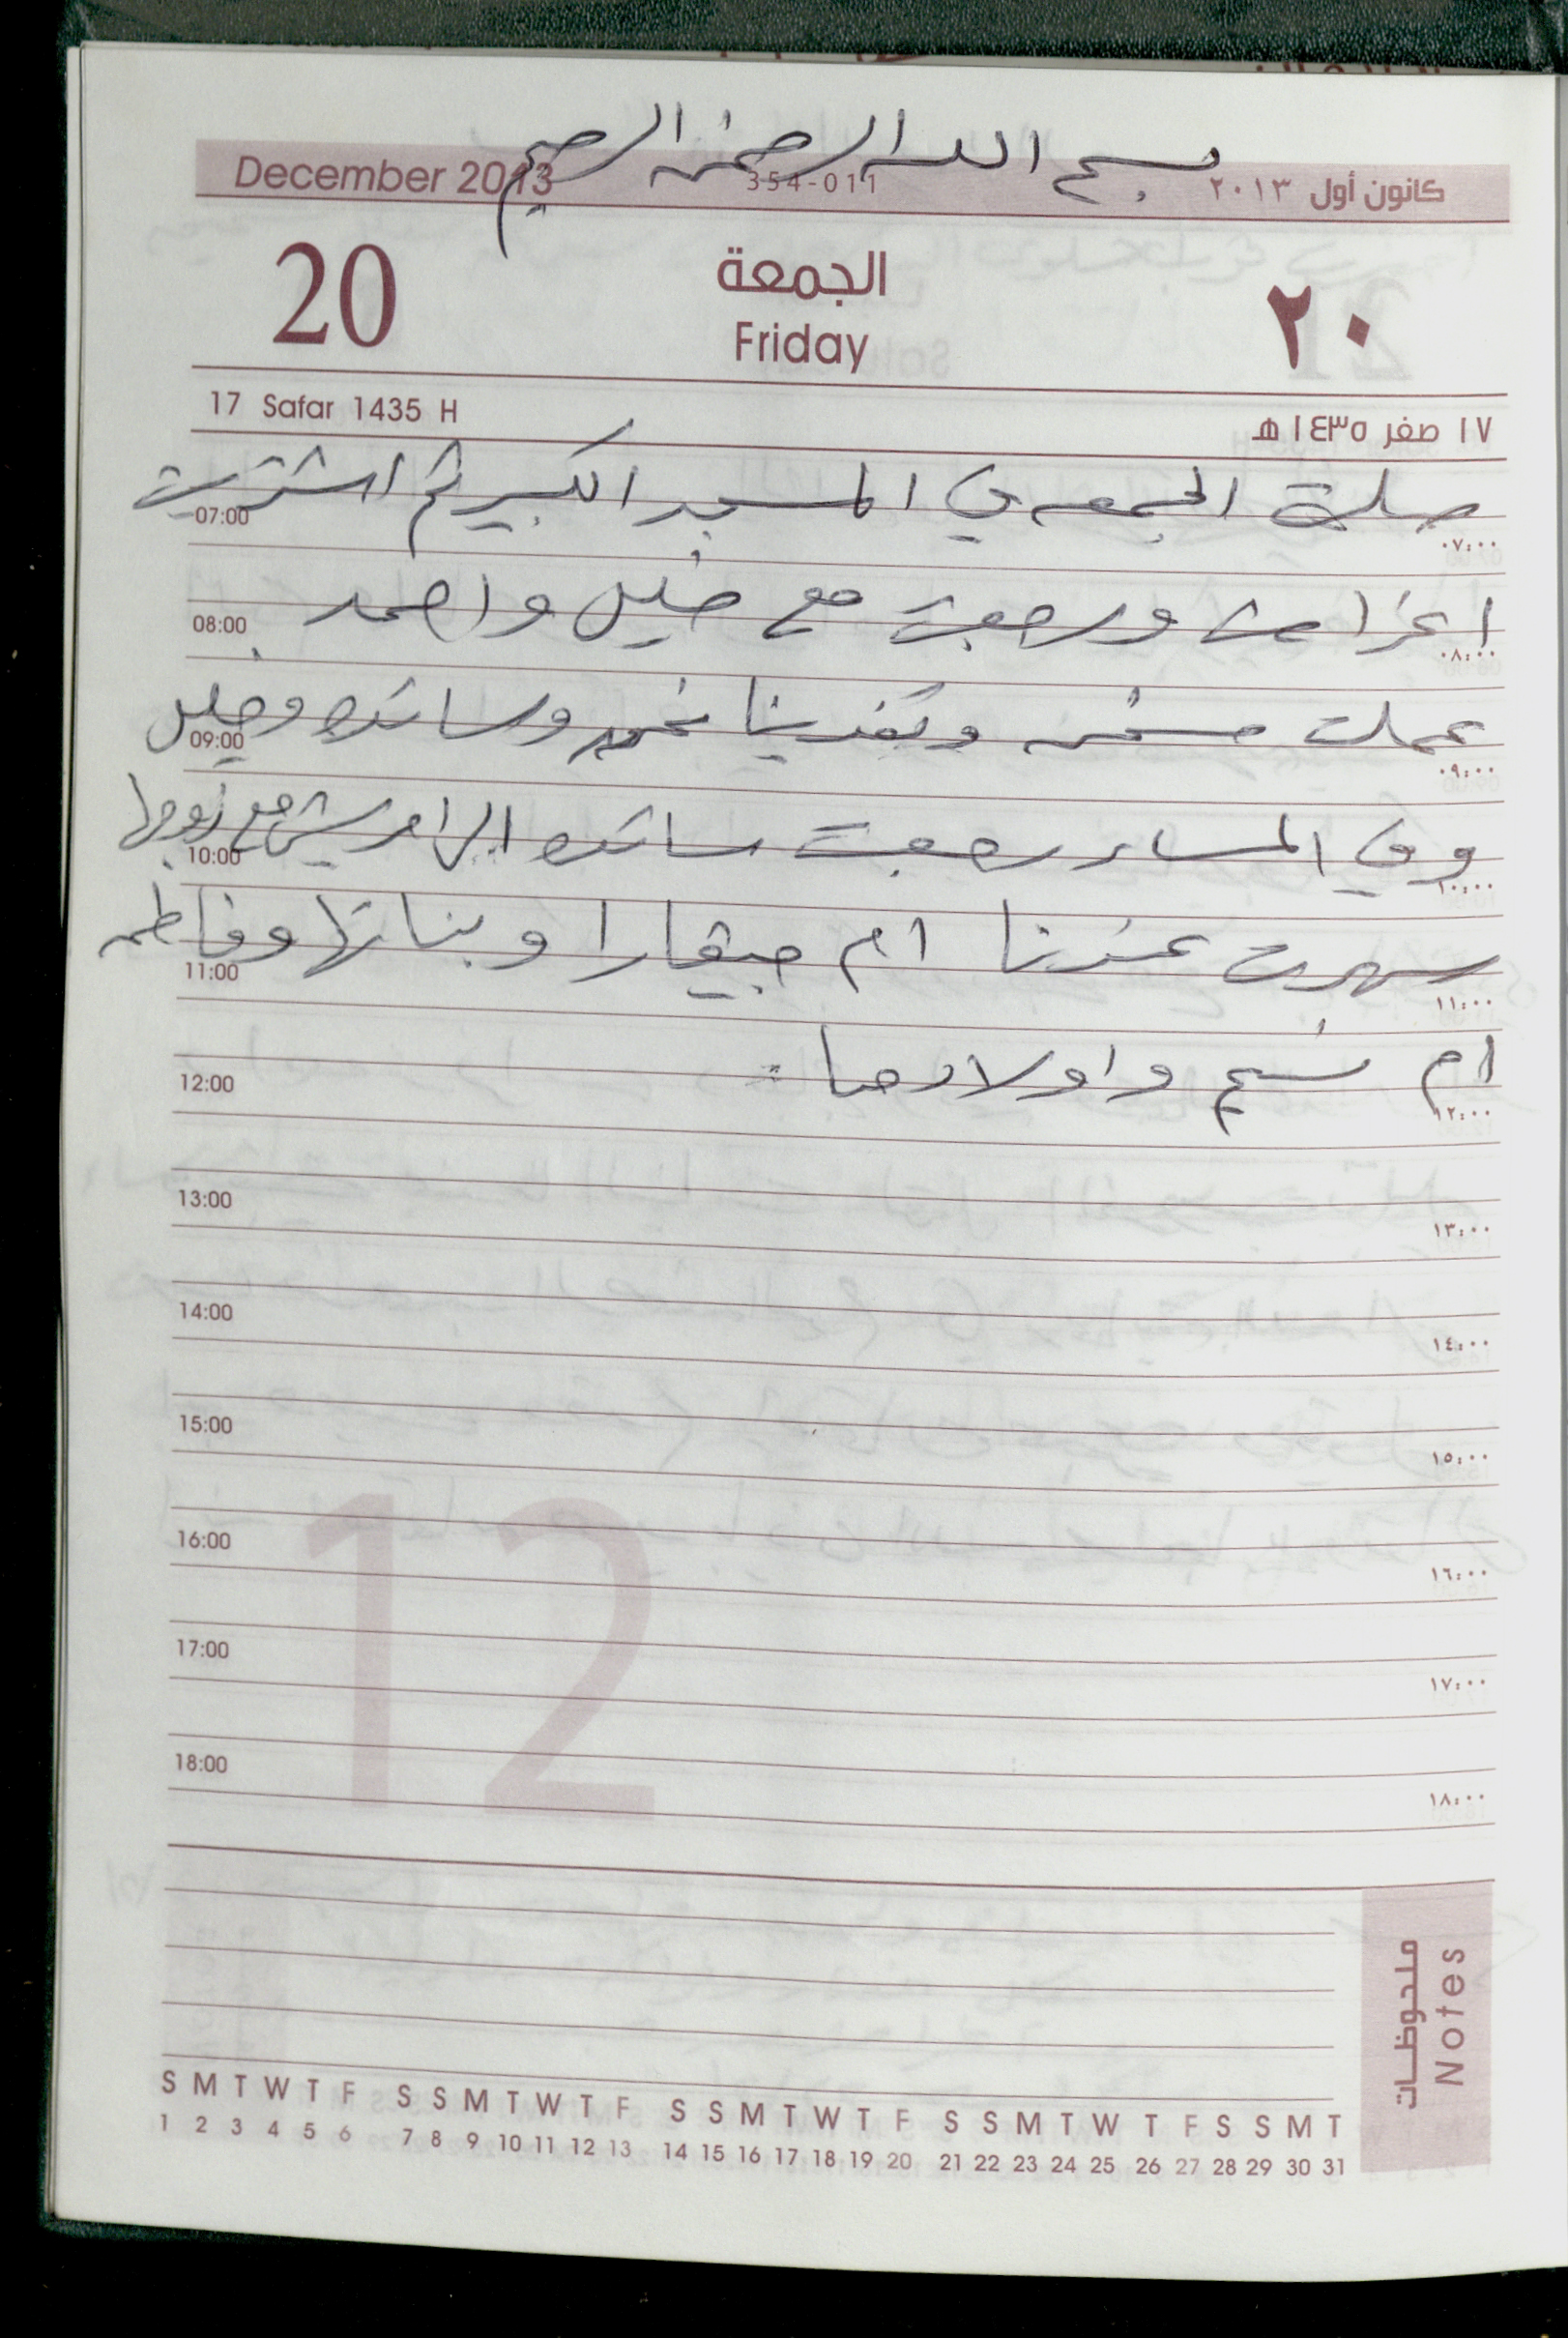 بسم الله الرحمن الرحيم
December 2013 354-011 كانون أول ٢٠١٣
20 الجمعة ٢٠
Friday
17 Safar 1435 H ١٧ صفر ١٤٣٥ هـ
صليت الجمعه في المسجد الكبير ثم اشتريت
07:00 ٠٧:٠٠
اغراض ورجعت مع خليل واحمد
08:00 ٠٨:٠٠
عملت وتغدينا نحن وساتره وخليل
09:00 ٠٩:٠٠
وفي المساء رجعت ساتره الى مع زوجها
10:00 ١٠:٠٠
سهرت عندنا ام جيفارا وبناتها وفاطمه
11:00 ١١:٠٠
ام واولادها
12:00 ١٢:٠٠
13:00 ١٣:٠٠
14:00 ١٤:٠٠
15:00 ١٥:٠٠
16:00 ١٦:٠٠
17:00 ١٧:٠٠
18:00 ١٨:٠٠
12
ملحوظات
Notes
S M T W T F S S M T W T F S S M T W T F S S M T W T F S S M T
1 2 3 4 5 6 7 8 9 10 11 12 13 14 15 16 17 18 19 20 21 22 23 24 25 26 27 28 29 30 31